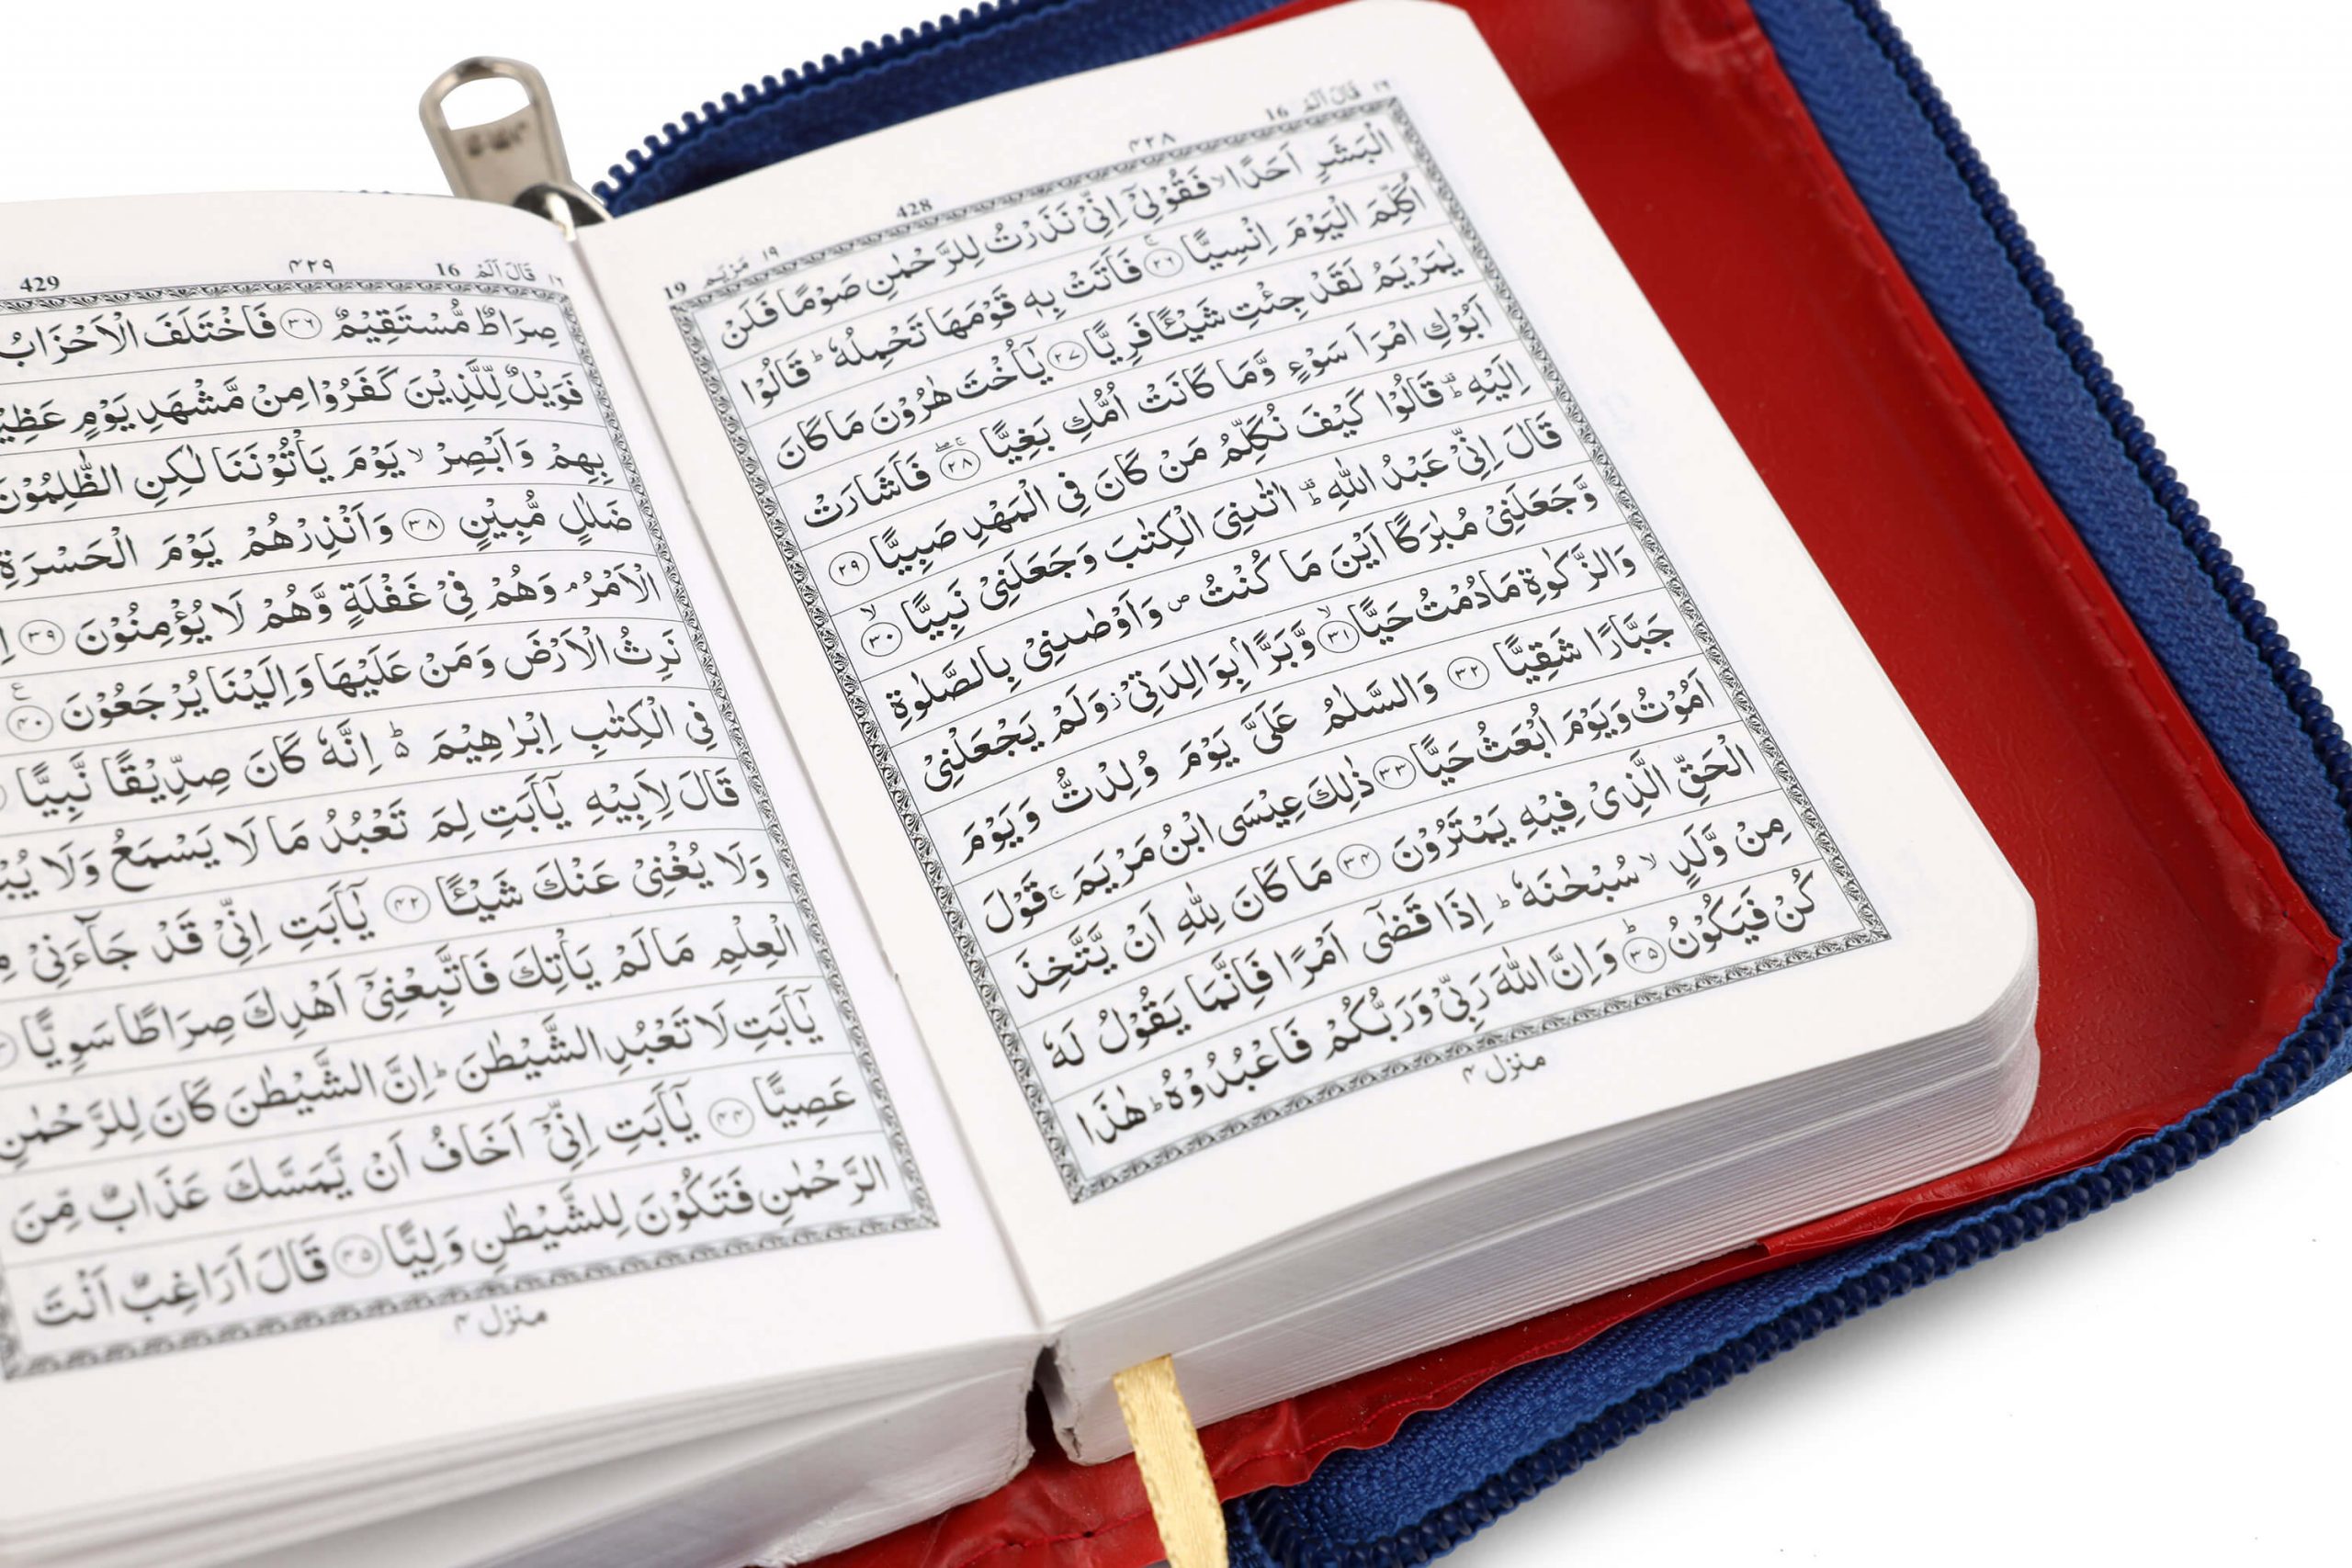 ١٦ قَالَ اَلَمْ 16
۴۲۸
428
١٩ مَرْيَم 19
الْبَشَرِ اَحَدًا ۙ فَقُوْلِيْٓ اِنِّيْ نَذَرْتُ لِلرَّحْمٰنِ صَوْمًا فَلَنْ
اُكَلِّمَ الْيَوْمَ اِنْسِيًّا ۚ ﴿٢٦﴾ فَاَتَتْ بِهٖ قَوْمَهَا تَحْمِلُهٗ ؕ قَالُوْا
يٰمَرْيَمُ لَقَدْ جِئْتِ شَيْـًٔا فَرِيًّا ﴿٢٧﴾ يٰۤاُخْتَ هٰرُوْنَ مَا كَانَ
اَبُوْكِ امْرَاَ سَوْءٍ وَّمَا كَانَتْ اُمُّكِ بَغِيًّا ﴿٢٨﴾ فَاَشَارَتْ
اِلَيْهِ ؕ قَالُوْا كَيْفَ نُكَلِّمُ مَنْ كَانَ فِي الْمَهْدِ صَبِيًّا ﴿٢٩﴾
قَالَ اِنِّيْ عَبْدُ اللّٰهِ ؕ اٰتٰىنِيَ الْكِتٰبَ وَجَعَلَنِيْ نَبِيًّا ۙ ﴿٣٠﴾
وَّجَعَلَنِيْ مُبٰرَكًا اَيْنَ مَا كُنْتُ ۪ وَاَوْصٰىنِيْ بِالصَّلٰوةِ
وَالزَّكٰوةِ مَادُمْتُ حَيًّا ۙ ﴿٣١﴾ وَّبَرًّۢا بِوَالِدَتِيْ ۫ وَلَمْ يَجْعَلْنِيْ
جَبَّارًا شَقِيًّا ﴿٣٢﴾ وَالسَّلٰمُ عَلَيَّ يَوْمَ وُلِدْتُّ وَيَوْمَ
اَمُوْتُ وَيَوْمَ اُبْعَثُ حَيًّا ﴿٣٣﴾ ذٰلِكَ عِيْسَى ابْنُ مَرْيَمَ ۚ قَوْلَ
الْحَقِّ الَّذِيْ فِيْهِ يَمْتَرُوْنَ ﴿٣٤﴾ مَا كَانَ لِلّٰهِ اَنْ يَّتَّخِذَ
مِنْ وَّلَدٍ ۙ سُبْحٰنَهٗ ؕ اِذَا قَضٰۤى اَمْرًا فَاِنَّمَا يَقُوْلُ لَهٗ
كُنْ فَيَكُوْنُ ؕ ﴿٣٥﴾ وَاِنَّ اللّٰهَ رَبِّيْ وَرَبُّكُمْ فَاعْبُدُوْهُ ؕ هٰذَا
منزل ۴
١٦ قَالَ اَلَمْ 16
۴۲۹
429
صِرَاطٌ مُّسْتَقِيْمٌ ﴿٣٦﴾ فَاخْتَلَفَ الْاَحْزَابُ
فَوَيْلٌ لِّلَّذِيْنَ كَفَرُوْا مِنْ مَّشْهَدِ يَوْمٍ
بِهِمْ وَاَبْصِرْ ۙ يَوْمَ يَاْتُوْنَنَا لٰكِنِ الظّٰلِمُوْنَ
ضَلٰلٍ مُّبِيْنٍ ﴿٣٨﴾ وَاَنْذِرْهُمْ يَوْمَ الْحَسْرَةِ
الْاَمْرُ ۘ وَهُمْ فِيْ غَفْلَةٍ وَّهُمْ لَا يُؤْمِنُوْنَ ﴿٣٩﴾
نَرِثُ الْاَرْضَ وَمَنْ عَلَيْهَا وَاِلَيْنَا يُرْجَعُوْنَ ﴿٤٠﴾
فِي الْكِتٰبِ اِبْرٰهِيْمَ ؕ اِنَّهٗ كَانَ صِدِّيْقًا نَّبِيًّا
قَالَ لِاَبِيْهِ يٰۤاَبَتِ لِمَ تَعْبُدُ مَا لَا يَسْمَعُ وَلَا
وَلَا يُغْنِيْ عَنْكَ شَيْـًٔا ﴿٤٢﴾ يٰۤاَبَتِ اِنِّيْ قَدْ جَآءَنِيْ
الْعِلْمِ مَا لَمْ يَاْتِكَ فَاتَّبِعْنِيْۤ اَهْدِكَ صِرَاطًا سَوِيًّا
يٰۤاَبَتِ لَا تَعْبُدِ الشَّيْطٰنَ ؕ اِنَّ الشَّيْطٰنَ كَانَ لِلرَّحْمٰنِ
عَصِيًّا ﴿٤٤﴾ يٰۤاَبَتِ اِنِّيْۤ اَخَافُ اَنْ يَّمَسَّكَ عَذَابٌ مِّنَ
الرَّحْمٰنِ فَتَكُوْنَ لِلشَّيْطٰنِ وَلِيًّا ﴿٤٥﴾ قَالَ اَرَاغِبٌ اَنْتَ
منزل ۴